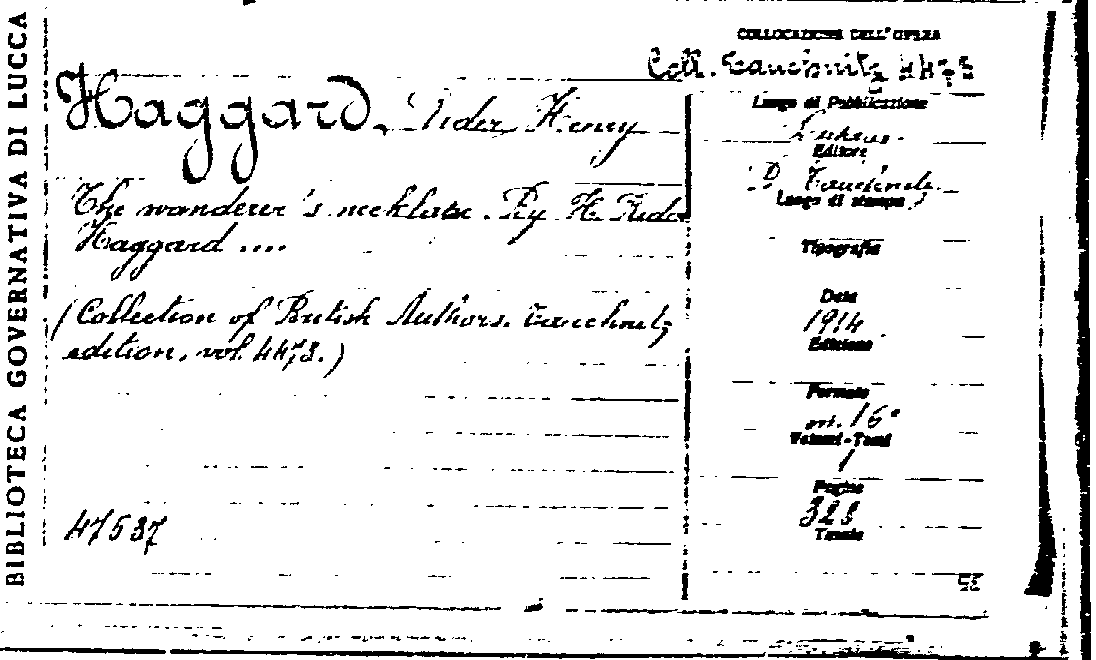 BIBLIOTECA GOVERNATIVA DI LUCCA
Haggard, Rider Henry
The wanderer's necklace. By H. Rider
Haggard ....
(Collection of British Authors. Tauchnitz
edition, vol. 4473.)
47537
COLLOCAZIONE DELL'OPERA
Coll. Tauchnitz 4473
Luogo di Pubblicazione
Editore
B. Tauchnitz
Luogo di stampa
Tipografia
Data
1914
Edizione
Formato
in. 16°
Volumi-Tomi
1
Pagine
328
Tavole